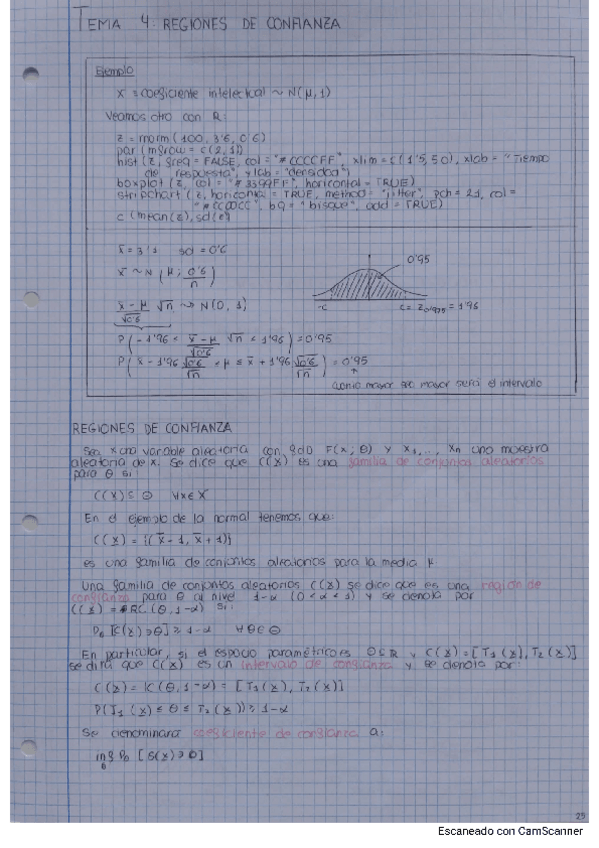 TEMA 4: REGIONES DE CONFIANZA
Ejemplo
X = coeficiente intelectual ~ N(μ, 1)
Veamos otro con R:
z = rnorm(100, 3'6, 0'6)
par(mfrow = c(2,1))
hist(z, freq = FALSE, col = "#CCCCFF", xlim = c(1'5, 50), xlab = "Tiempo
de respuesta", ylab = "densidad")
boxplot(z, col = "#3399FF", horizontal = TRUE)
stripchart(z, horizontal = TRUE, method = "jitter", pch = 21, col =
"#CC00CC", bg = "bisque", add = TRUE)
c(mean(z), sd(z))
x̄ = 3'1 sd = 0'6
x̄ ~ N(μ; 0'6/n)
0'95
-c c = z0,975 = 1'96
(x̄ - μ)/√0'6 √n ~> N(0, 1)
P(-1'96 ≤ (x̄ - μ)/√0'6 √n ≤ 1'96) = 0'95
P(x̄ - 1'96 √0'6/√n ≤ μ ≤ x̄ + 1'96 √0'6/√n) = 0'95
cuanto mayor sea mayor será el intervalo
REGIONES DE CONFIANZA
Sea X una variable aleatoria con fdD F(x; θ) y X1, ..., Xn una muestra
aleatoria de X. Se dice que C(X) es una familia de conjuntos aleatorios
para θ si:
C(X) ⊆ Θ ∀x ∈ X
En el ejemplo de la normal tenemos que:
C(X) = {(x̄ - 1, x̄ + 1)}
es una familia de conjuntos aleatorios para la media μ
Una familia de conjuntos aleatorios C(X) se dice que es una región de
confianza para θ al nivel 1-α (0 < α < 1) y se denota por
C(X) = RC(θ, 1-α) si:
Pθ[C(X) ∋ θ] ≥ 1-α ∀θ ∈ Θ
En particular, si el espacio paramétrico es Θ ⊆ R y C(X) = [T1(X), T2(X)]
se dirá que C(X) es un intervalo de confianza y se denota por:
C(X) = IC(θ, 1-α) = [T1(X), T2(X)]
P(T1(X) ≤ θ ≤ T2(X)) ≥ 1-α
Se denominará coeficiente de confianza a:
inf Pθ [C(X) ∋ θ]
θ
25
Escaneado con CamScanner